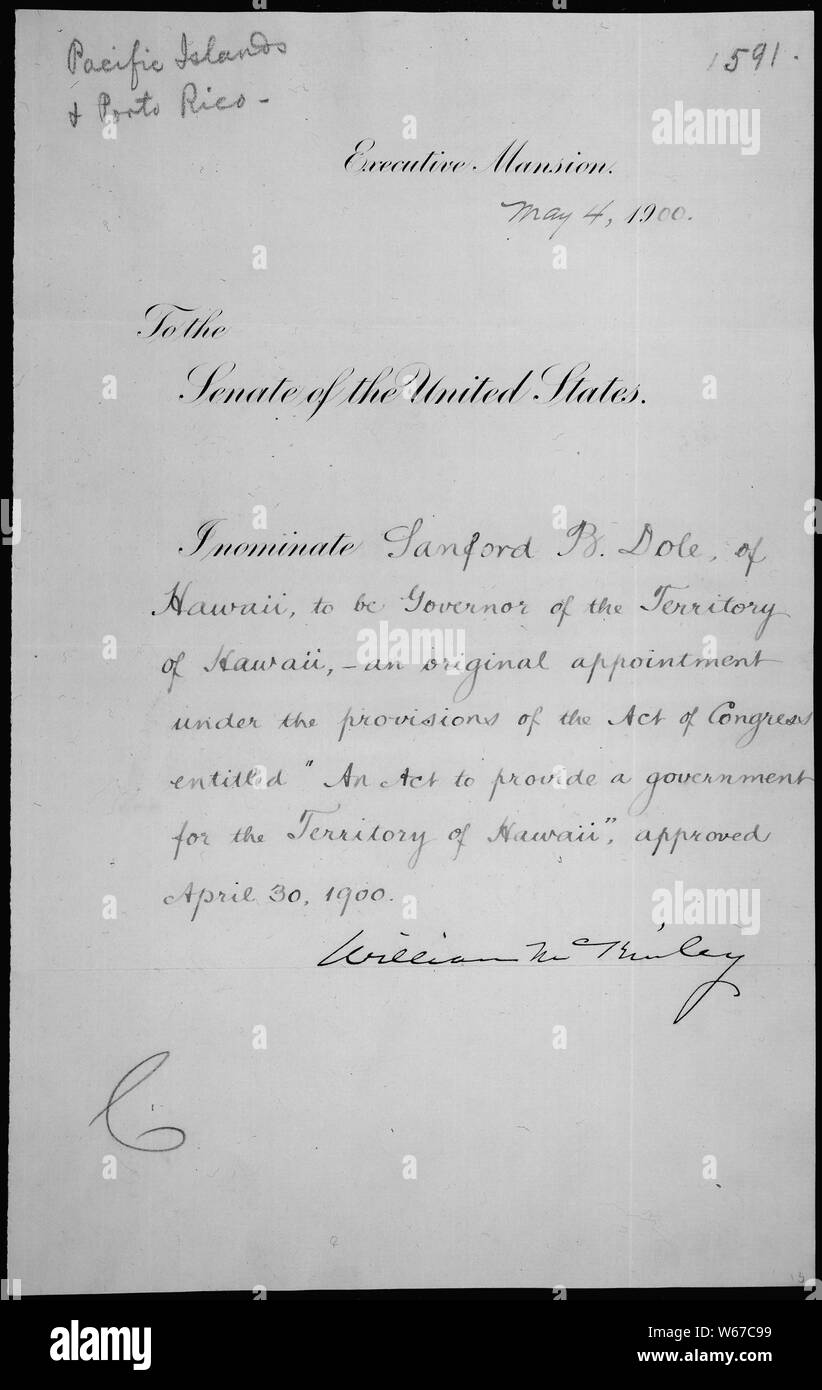 Pacific Islands
& Porto Rico -
1591.
Executive Mansion.
May 4, 1900.
To the
Senate of the United States.
I nominate Sanford B. Dole, of
Hawaii, to be Governor of the Territory
of Hawaii, - an original appointment
under the provisions of the Act of Congress
entitled "An Act to provide a government
for the Territory of Hawaii", approved
April 30, 1900.
William McKinley
C
alamy
alamy
alamy
alamy
www.alamy.com
W67C99